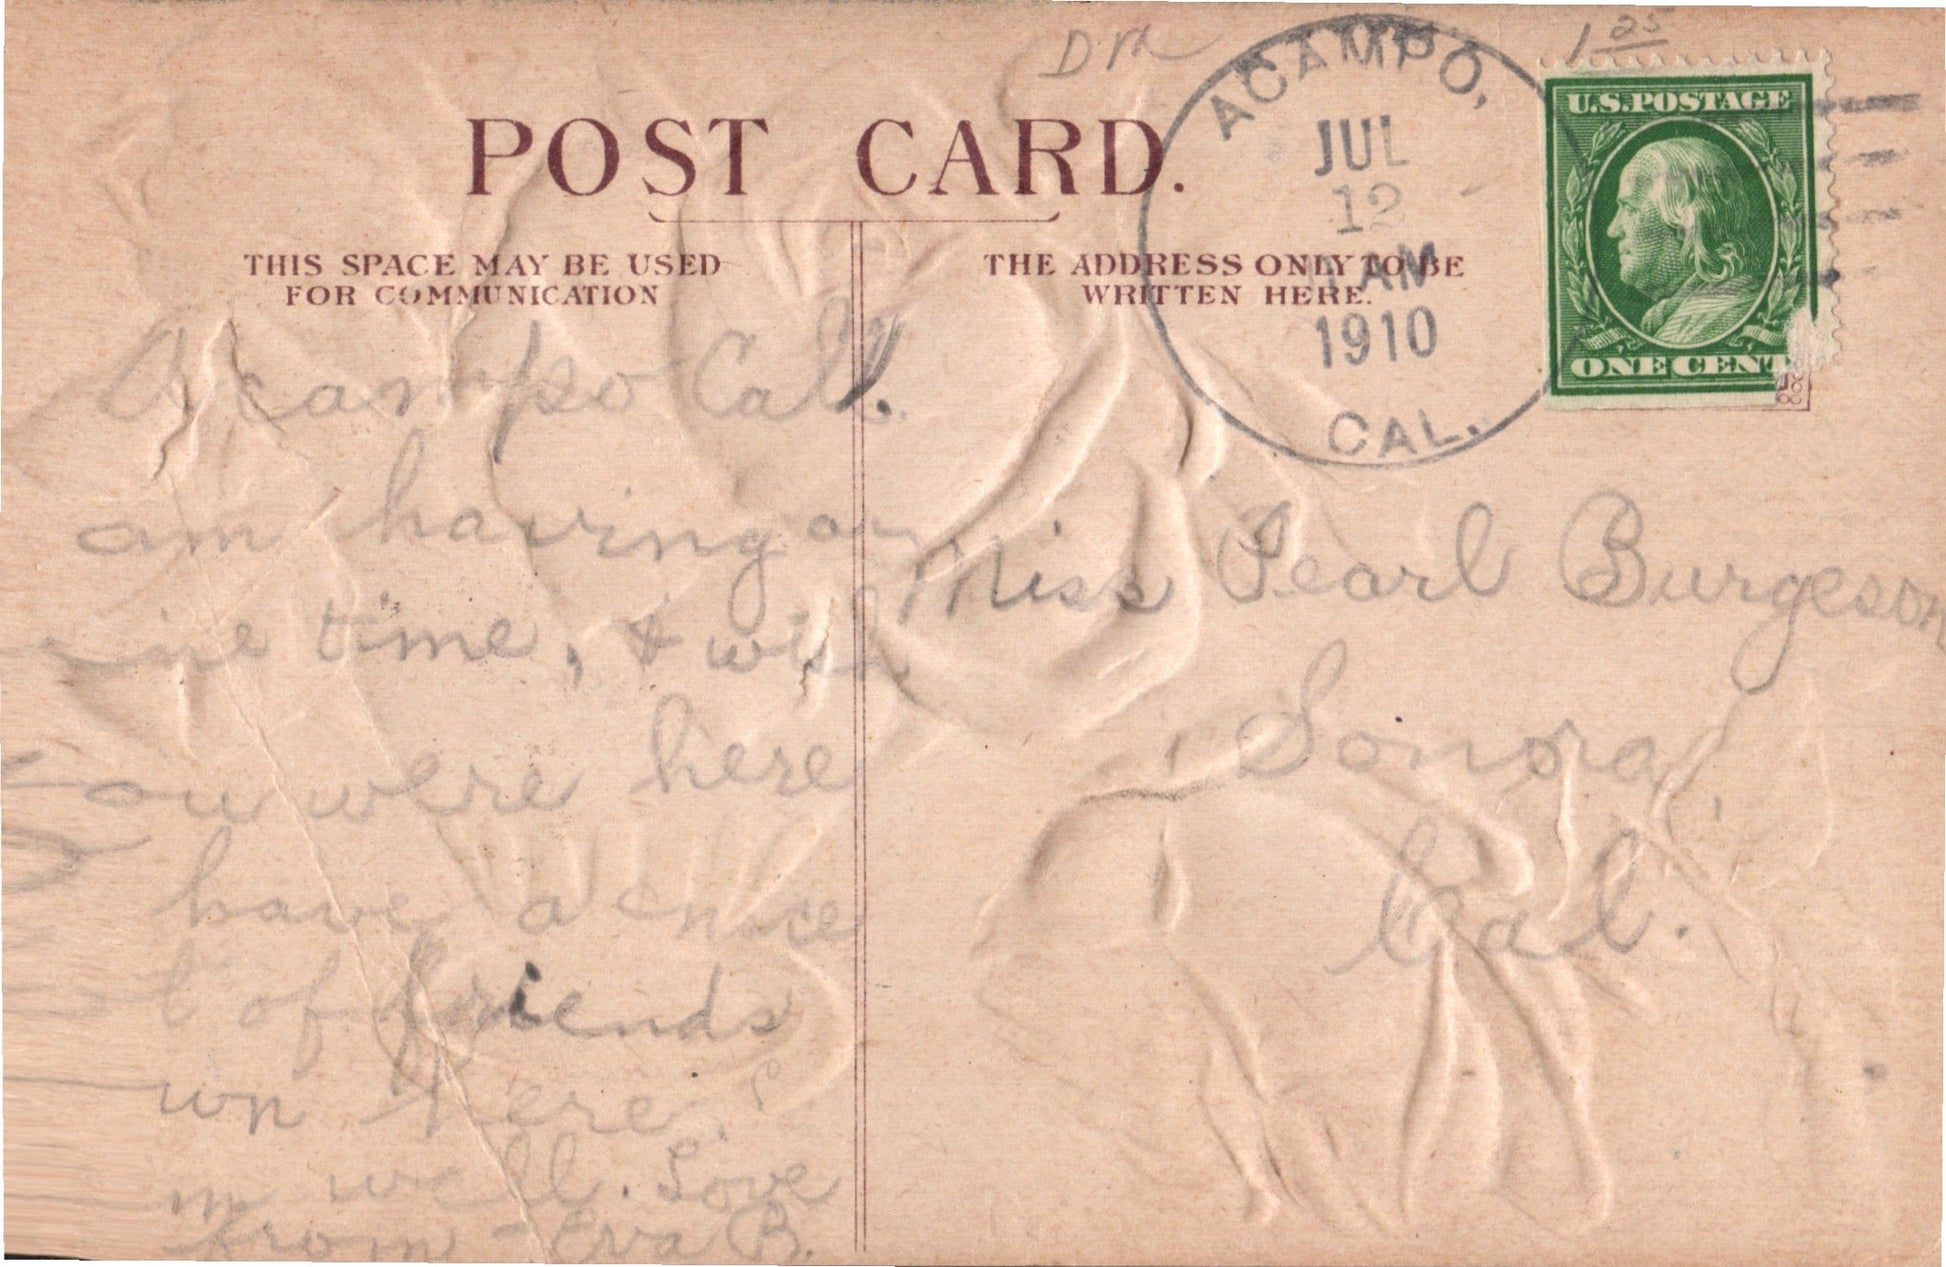 1 25
ACAMPO,
JUL
12
AM
1910
CAL.
U.S. POSTAGE
ONE CENT
POST CARD.
THIS SPACE MAY BE USED
FOR COMMUNICATION
THE ADDRESS ONLY TO BE
WRITTEN HERE.
Acampo Cal.
am having a
ine time, & wish
ou were here
have a nice
l of friends
wn here.
m well. Love
from - Eva B.
Miss Pearl Burgeson
Sonora,
Cal.